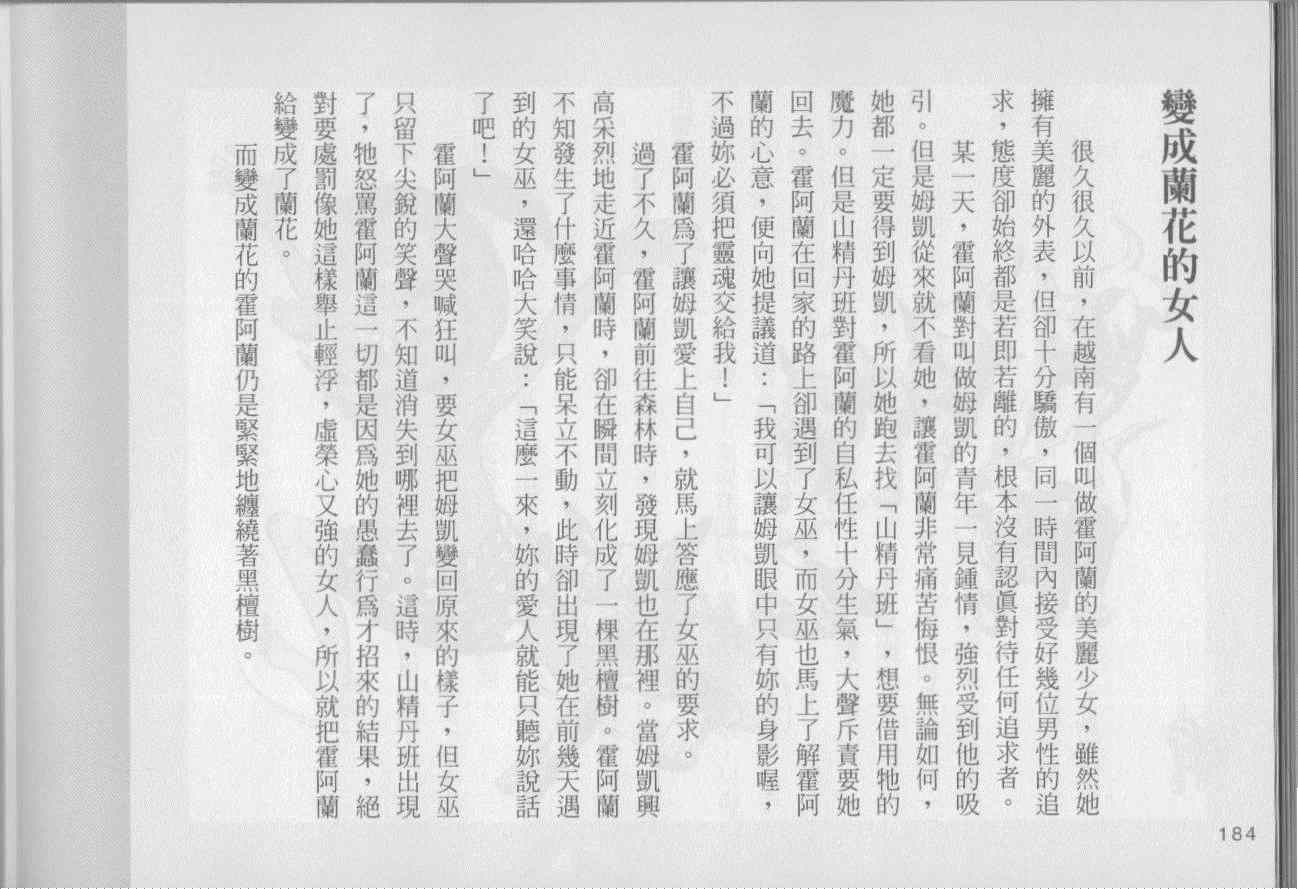 變成蘭花的女人
很久很久以前，在越南有一個叫做霍阿蘭的美麗少女，雖然她
擁有美麗的外表，但卻十分驕傲，同一時間內接受好幾位男性的追
求，態度卻始終都是若即若離的，根本沒有認眞對待任何追求者。
某一天，霍阿蘭對叫做姆凱的青年一見鍾情，強烈受到他的吸
引。但是姆凱從來就不看她，讓霍阿蘭非常痛苦悔恨。無論如何，
她都一定要得到姆凱，所以她跑去找「山精丹班」，想要借用牠的
魔力。但是山精丹班對霍阿蘭的自私任性十分生氣，大聲斥責要她
回去。霍阿蘭在回家的路上卻遇到了女巫，而女巫也馬上了解霍阿
蘭的心意，便向她提議道：「我可以讓姆凱眼中只有妳的身影喔，
不過妳必須把靈魂交給我！」
霍阿蘭爲了讓姆凱愛上自己，就馬上答應了女巫的要求。
過了不久，霍阿蘭前往森林時，發現姆凱也在那裡。當姆凱興
高采烈地走近霍阿蘭時，卻在瞬間立刻化成了一棵黑檀樹。霍阿蘭
不知發生了什麼事情，只能呆立不動，此時卻出現了她在前幾天遇
到的女巫，還哈哈大笑說：「這麼一來，妳的愛人就能只聽妳說話
了吧！」
霍阿蘭大聲哭喊狂叫，要女巫把姆凱變回原來的樣子，但女巫
只留下尖銳的笑聲，不知道消失到哪裡去了。這時，山精丹班出現
了，牠怒罵霍阿蘭這一切都是因爲她的愚蠢行爲才招來的結果，絕
對要處罰像她這樣舉止輕浮，虛榮心又強的女人，所以就把霍阿蘭
給變成了蘭花。
而變成蘭花的霍阿蘭仍是緊緊地纏繞著黑檀樹。
184